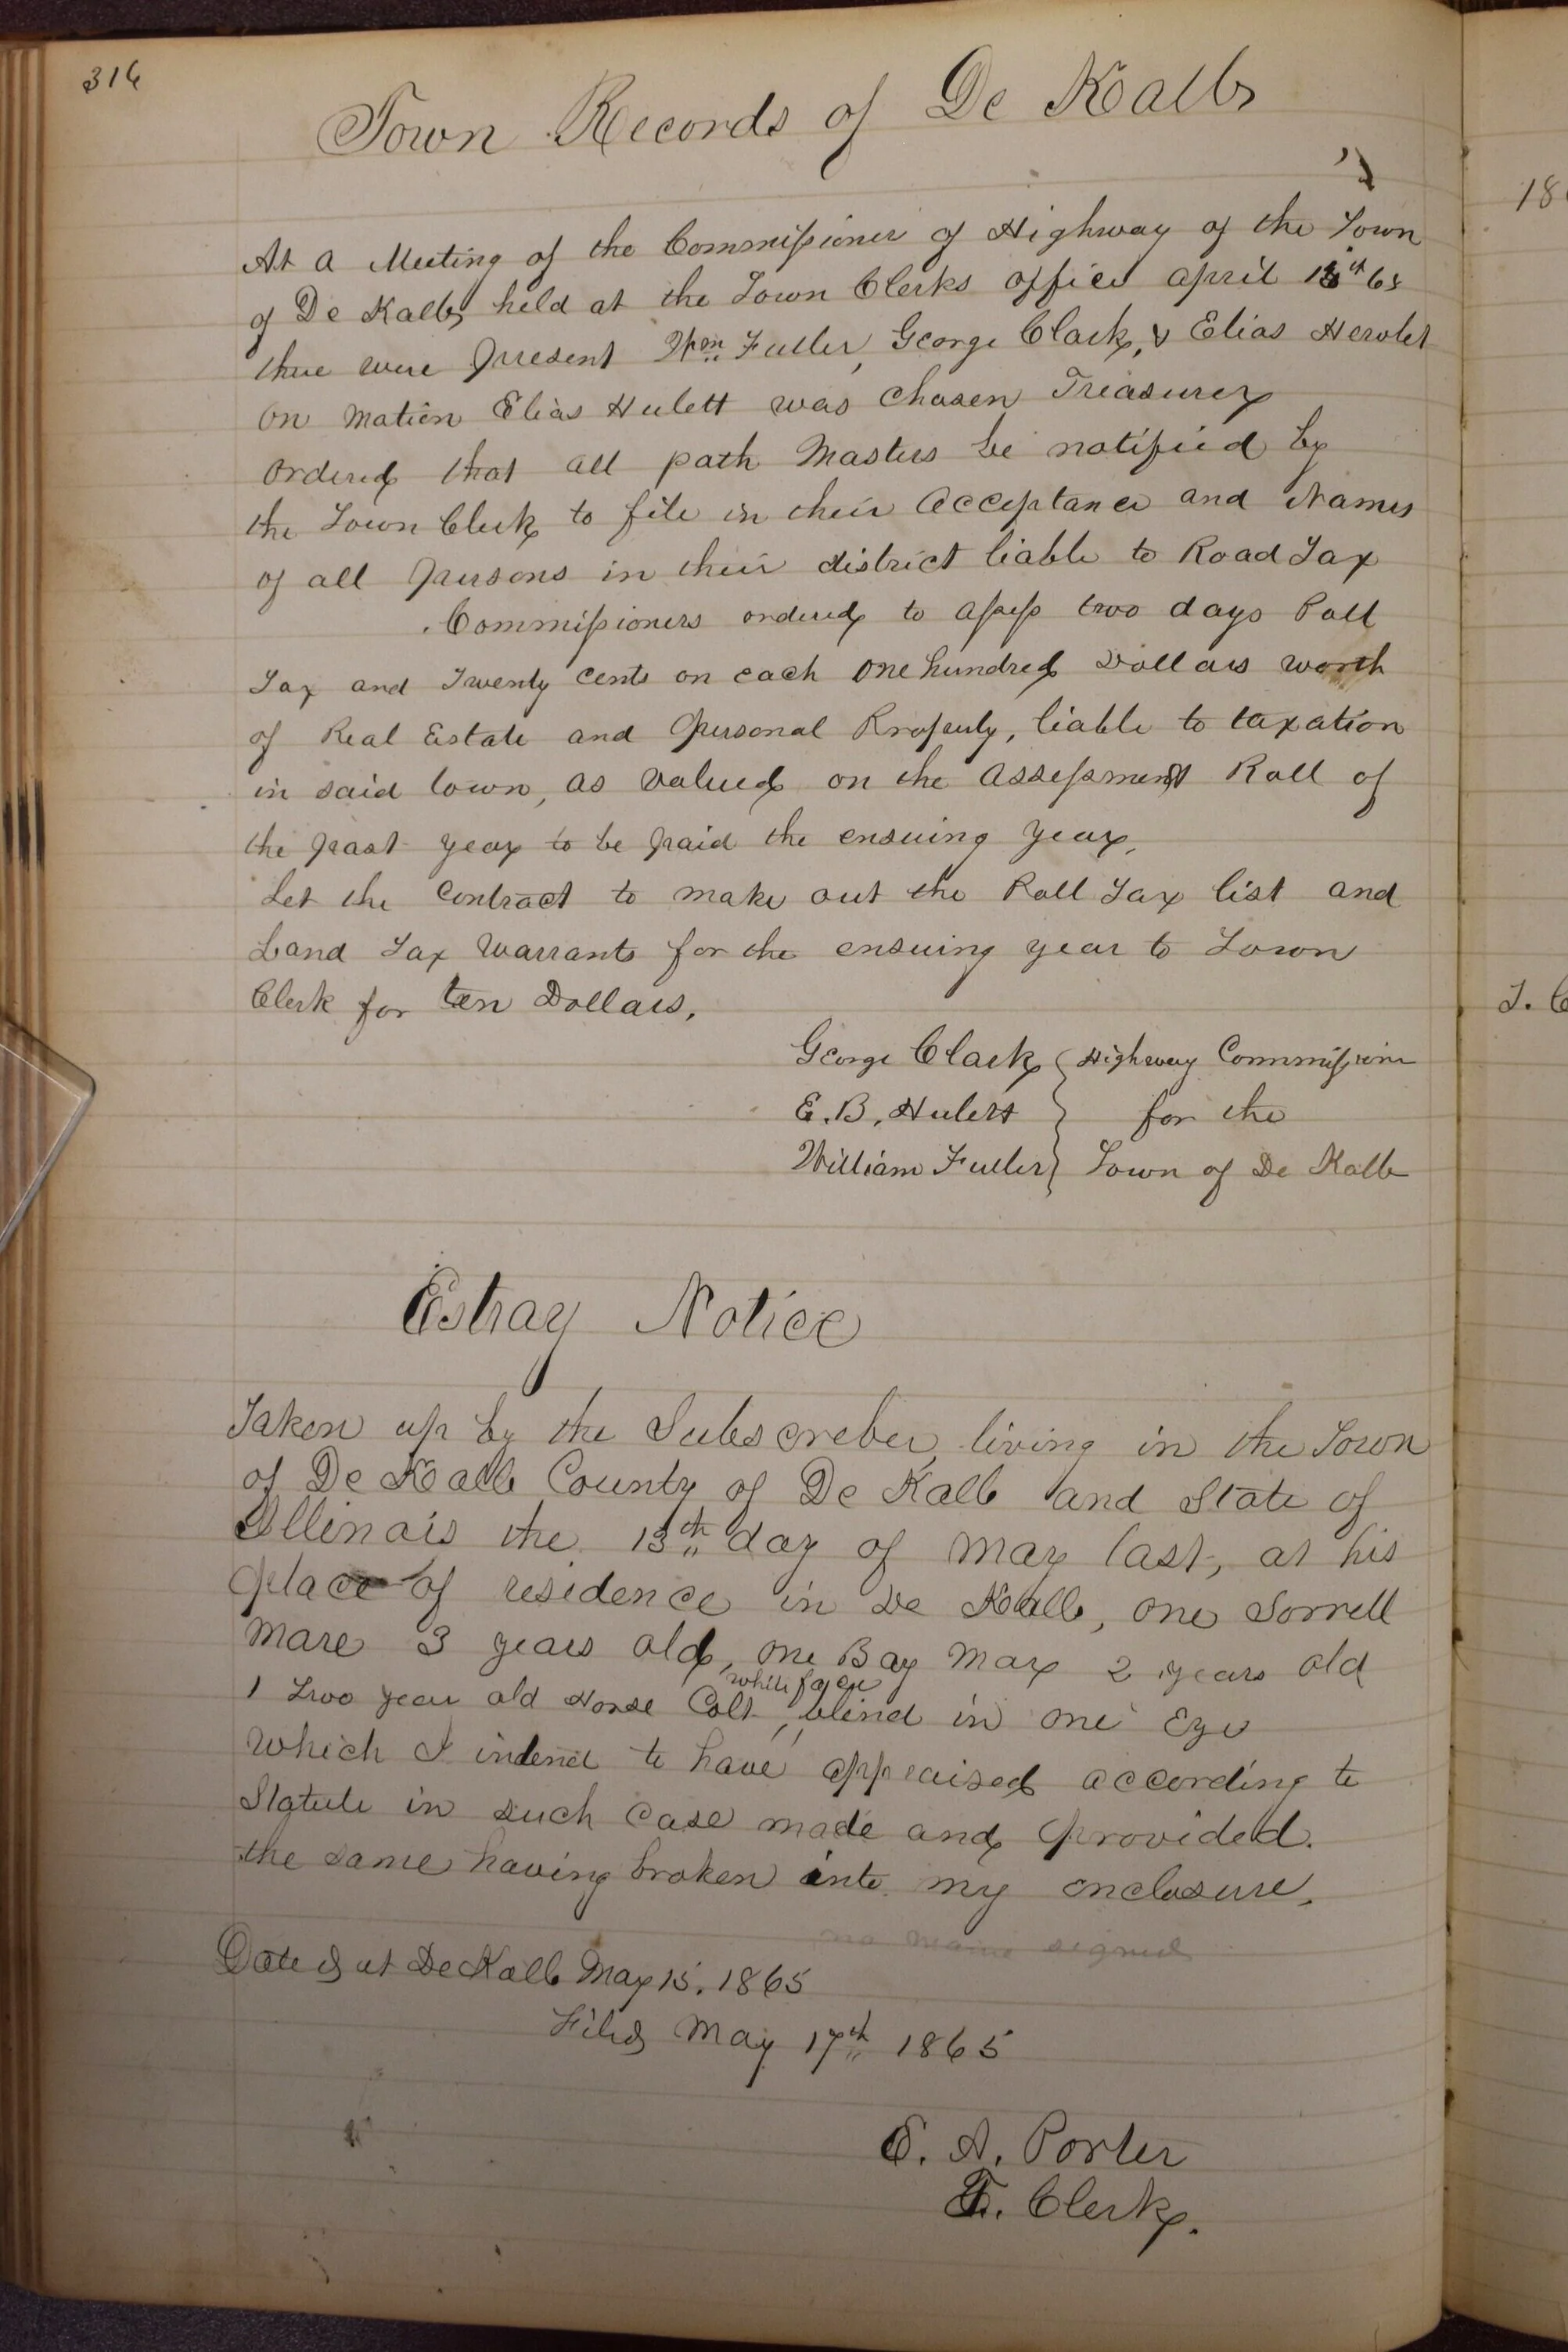 316
Town Records of De Kalb
At a Meeting of the Commissioner of Highway of the Town
of De Kalb held at the Town Clerks office april 65
there were present Wm Fuller, George Clark, & Elias
on motion Elias Hulett was Chosen Treasurer
ordered that all path Masters be notified by
the Town Clerk to file in their acceptance and Names
of all persons in their district liable to Road Tax
Commissioners ordered to assess two days Poll
Tax and Twenty cents on each one hundred Dollars worth
of Real Estate and personal Property, liable to taxation
in said town, as valued on the assessment Roll of
the past year to be paid the ensuing year,
Let the contract to make out the Poll Tax list and
Land Tax warrants for the ensuing year to Town
Clerk for ten Dollars.
George Clark Highway Commissioner
E. B. Hulett for the
William Fuller Town of De Kalb
Estray Notice
Taken up by the Subscreber, living in the Town
of De Kalb County of De Kalb and State of
Illinois the 13th day of May last, at his
place of residence in De Kalb, one Sorrell
mare 3 years old, one Bay Mare 2 years old
white face
1 Two year old Horse Colt, blind in one Eye
which I indend to have appraised according to
Statute in such case made and provided.
the same having broken into my enclosure.
no name signed
Dated at De Kalb May 15, 1865
Filed May 17th 1865
E. A. Porter
T. Clerk.